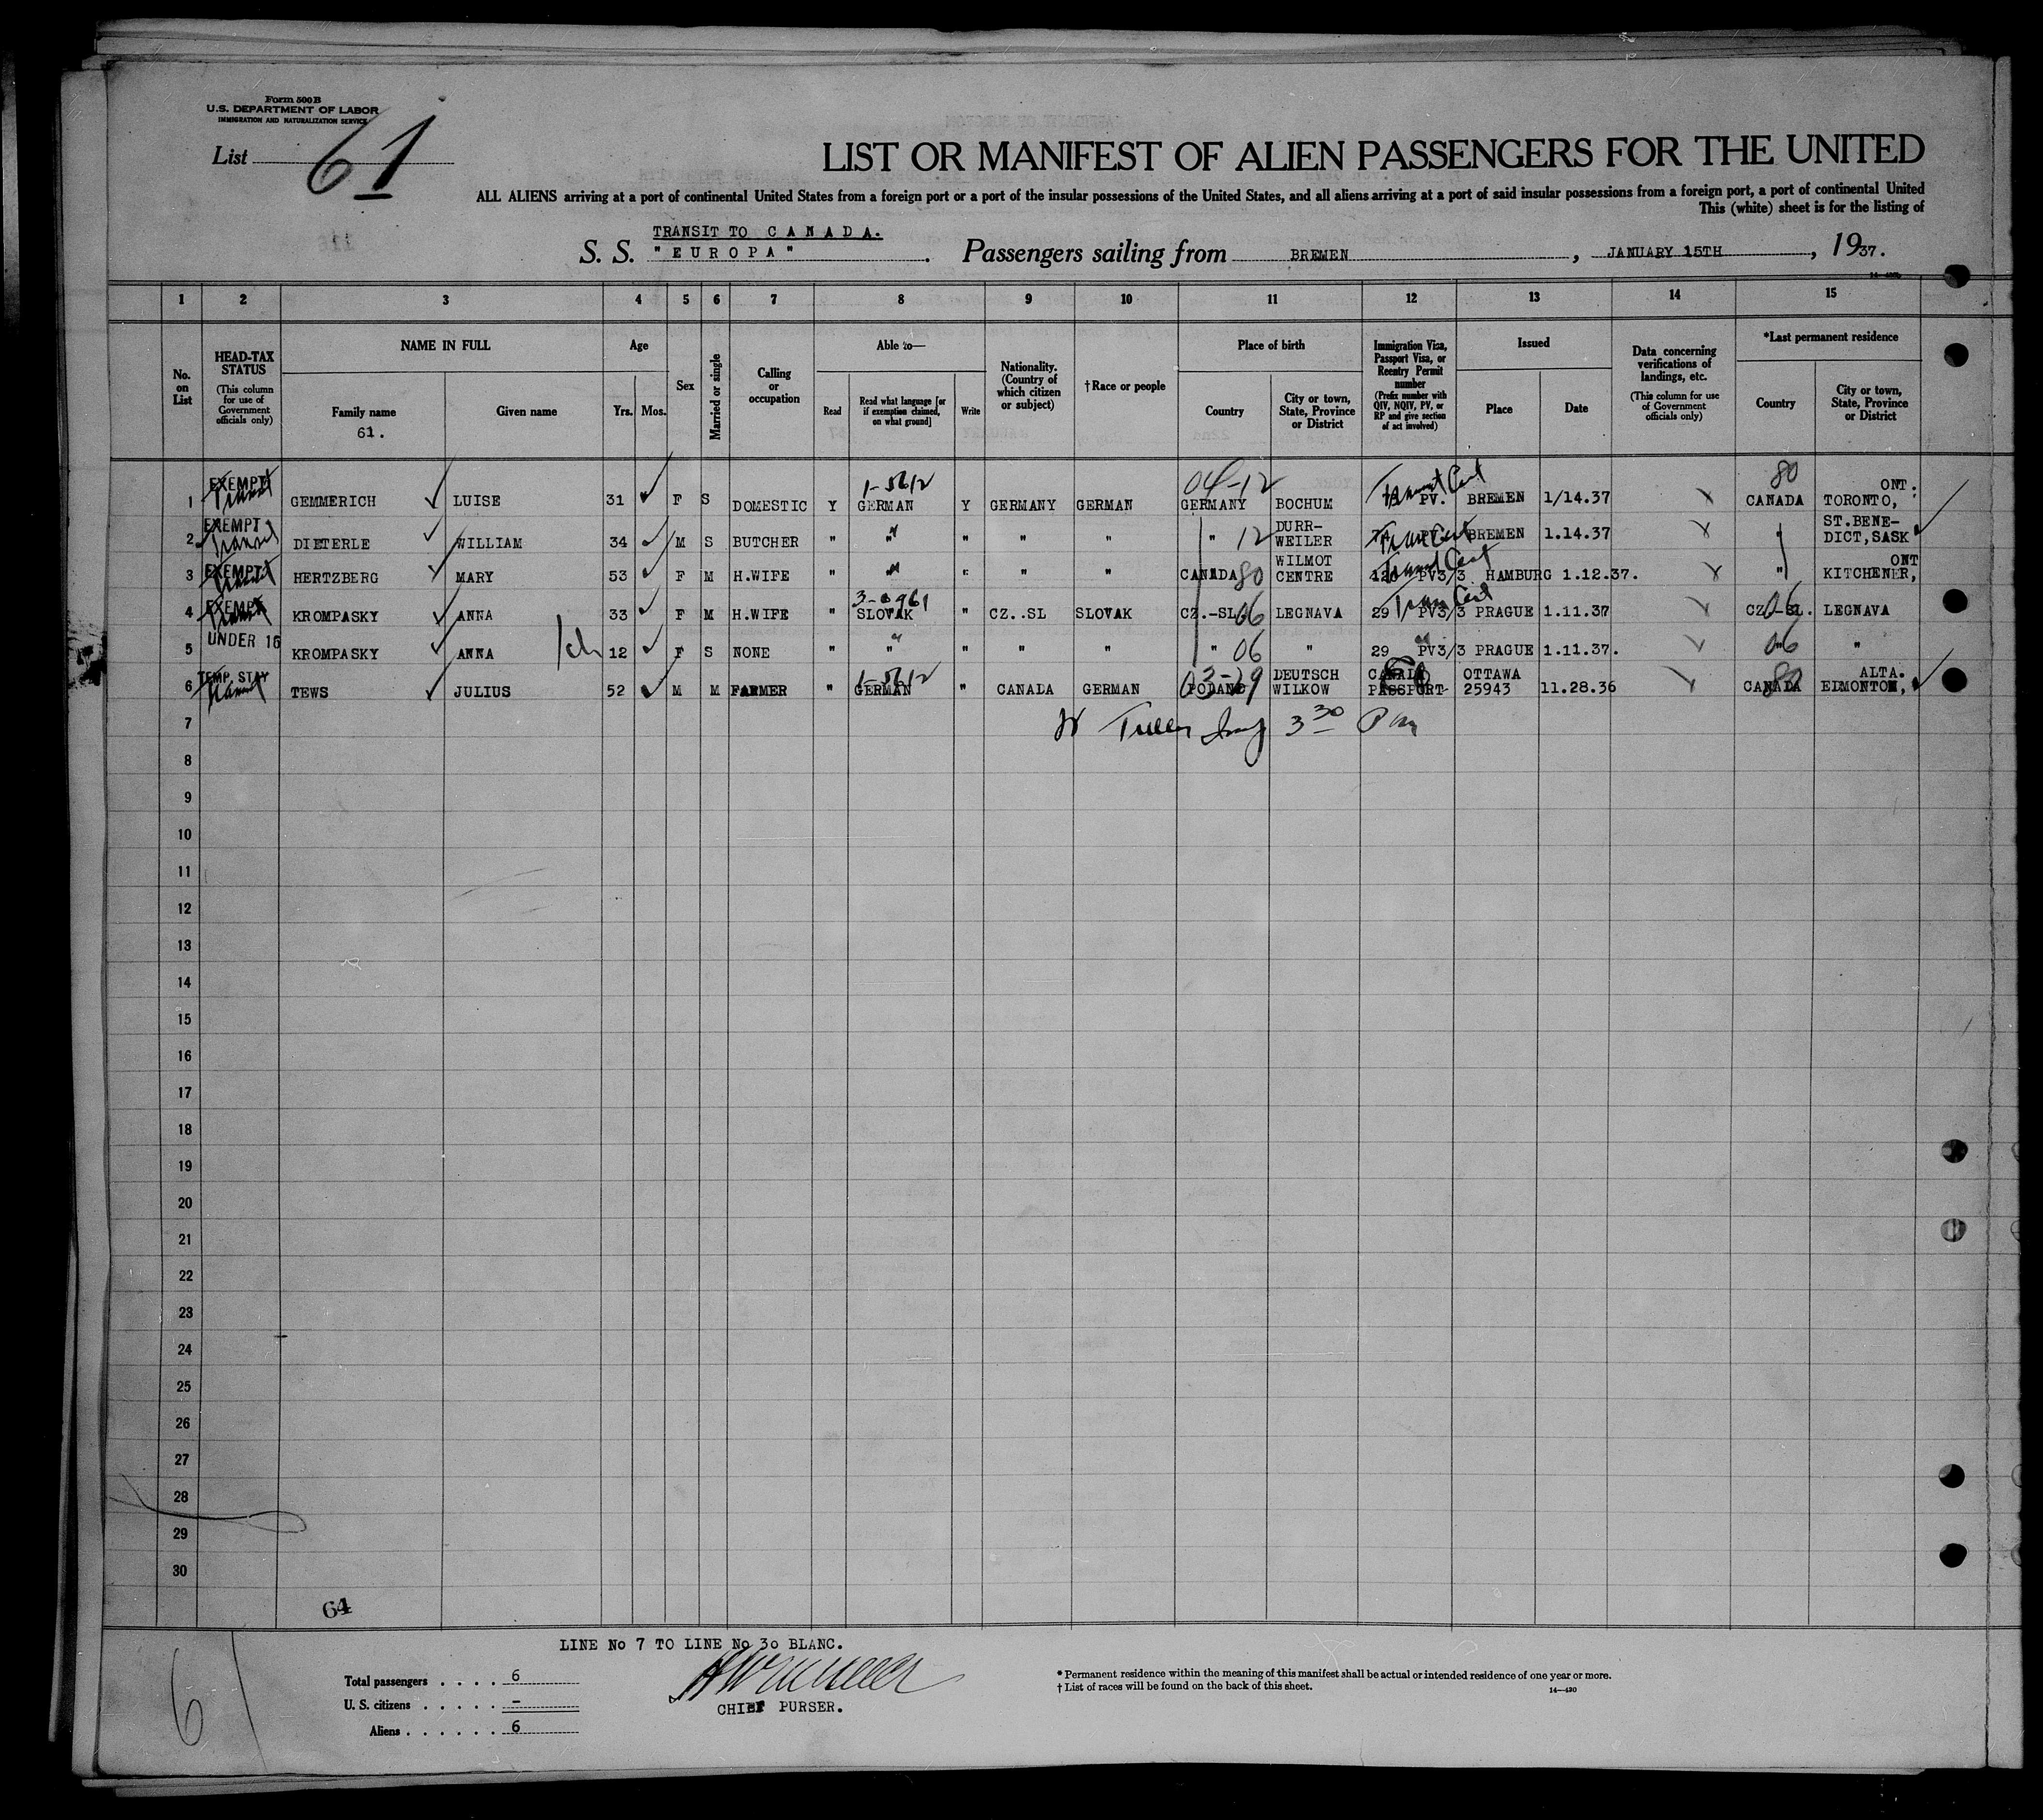 Form 500 B
U.S. DEPARTMENT OF LABOR
IMMIGRATION AND NATURALIZATION SERVICE
List 61
LIST OR MANIFEST OF ALIEN PASSENGERS FOR THE UNITED
ALL ALIENS arriving at a port of continental United States from a foreign port or a port of the insular possessions of the United States, and all aliens arriving at a port of said insular possessions from a foreign port, a port of continental United
This (white) sheet is for the listing of
TRANSIT TO C A N A D A.
S. S. " E U R O P A " . Passengers sailing from BREMEN , JANUARY 15TH , 1937.
1 2 3 4 5 6 7 8 9 10 11 12 13 14 15
No. on List
HEAD-TAX STATUS (This column for use of Government officials only)
NAME IN FULL
Family name
61.
Given name
Age
Yrs. Mos.
Sex
Married or single
Calling or occupation
Able to—
Read
Read what language [or if exemption claimed, on what ground]
Write
Nationality. (Country of which citizen or subject)
†Race or people
Place of birth
Country
City or town, State, Province or District
Immigration Visa, Passport Visa, or Reentry Permit number (Prefix number with QIV, NQIV, PV, or RP and give section of act involved)
Issued
Place
Date
Data concerning verifications of landings, etc. (This column for use of Government officials only)
*Last permanent residence
Country
City or town, State, Province or District
1 EXEMPT GEMMERICH LUISE 31 F S DOMESTIC Y GERMAN Y GERMANY GERMAN 04-12 GERMANY BOCHUM Transit Cert PV. BREMEN 1/14.37 80 CANADA TORONTO, ONT.
2 EXEMPT DIETERLE WILLIAM 34 M S BUTCHER " " " " " " 12 DURR-WEILER BREMEN 1.14.37 " ST.BENE-DICT,SASK
3 EXEMPT HERTZBERG MARY 53 F M H.WIFE " " " " " CANADA 80 WILMOT CENTRE PV3/3 HAMBURG 1.12.37. " KITCHENER, ONT
4 EXEMPT KROMPASKY ANNA 33 F M H.WIFE " SLOVAK " CZ..SL SLOVAK CZ.-SL 06 LEGNAVA 29 PV3/3 PRAGUE 1.11.37 CZ.-SL. 06 LEGNAVA
5 UNDER 16 KROMPASKY ANNA 12 F S NONE " " " " 06 " 29 PV3/3 PRAGUE 1.11.37. " 06 "
6 TEMP. STAY TEWS JULIUS 52 M M FARMER " GERMAN " CANADA GERMAN POLAND DEUTSCH WILKOW CANADA PASSPORT- OTTAWA 25943 11.28.36 CANADA 80 EDMONTON, ALTA.
7 3 30
8
9
10
11
12
13
14
15
16
17
18
19
20
21
22
23
24
25
26
27
28
29
30
64
LINE No 7 TO LINE No 30 BLANC.
Total passengers . . . . 6
U. S. citizens . . . . . –
Aliens . . . . . . 6
CHIEF PURSER.
* Permanent residence within the meaning of this manifest shall be actual or intended residence of one year or more.
† List of races will be found on the back of this sheet.
14—420
61